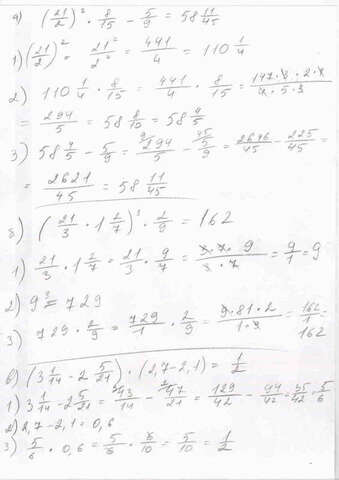 а) (21/2)² · 8/15 − 5/9 = 58 11/45
1) (21/2)² = 21²/2² = 441/4 = 110 1/4
2) 110 1/4 · 8/15 = 441/4 · 8/15 = 147·3·2·4/4·5·3
= 294/5 = 58 8/10 = 58 4/5
3) 58 4/5 − 5/9 = 294/5 − 5/9 = 2646/45 − 225/45 =
= 2621/45 = 58 11/45
б) (21/3 · 1 2/7)³ · 2/9 = 162
1) 21/3 · 1 2/7 = 21/3 · 9/7 = 3·7·9/3·7 = 9/1 = 9
2) 9³ = 729
3) 729 · 2/9 = 729/1 · 2/9 = 9·81·2/1·9 = 162/1 = 162
в) (3 1/14 − 2 5/21) · (2,7 − 2,1) = 1/2
1) 3 1/14 − 2 5/21 = 43/14 − 47/21 = 129/42 − 94/42 = 35/42 = 5/6
2) 2,7 − 2,1 = 0,6
3) 5/6 · 0,6 = 5/6 · 6/10 = 5/10 = 1/2